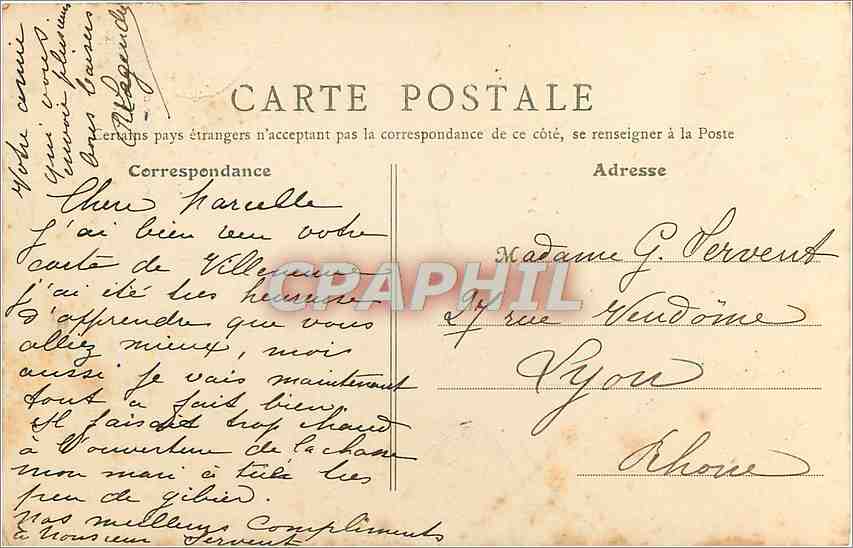 CARTE POSTALE
Certains pays étrangers n'acceptent pas la correspondance de ce côté, se renseigner à la Poste
Correspondance
Chere Marcelle
J'ai bien reçu votre
carte de Villeneuve
j'ai été très heureuse
d'apprendre que vous
alliez mieux, moi
aussi je vais maintenant
tout a fait bien.
Il faisait trop chaud
à l'ouverture de la chasse
mon mari à tué très
peu de gibier.
Nos meilleurs Compliments
à Monsieur Servent
Votre amie
qui vous
envoie plusieurs
bons baisers
Adresse
Madame G. Servent
27 rue Vendôme
Lyon
Rhone
CPAPHIL